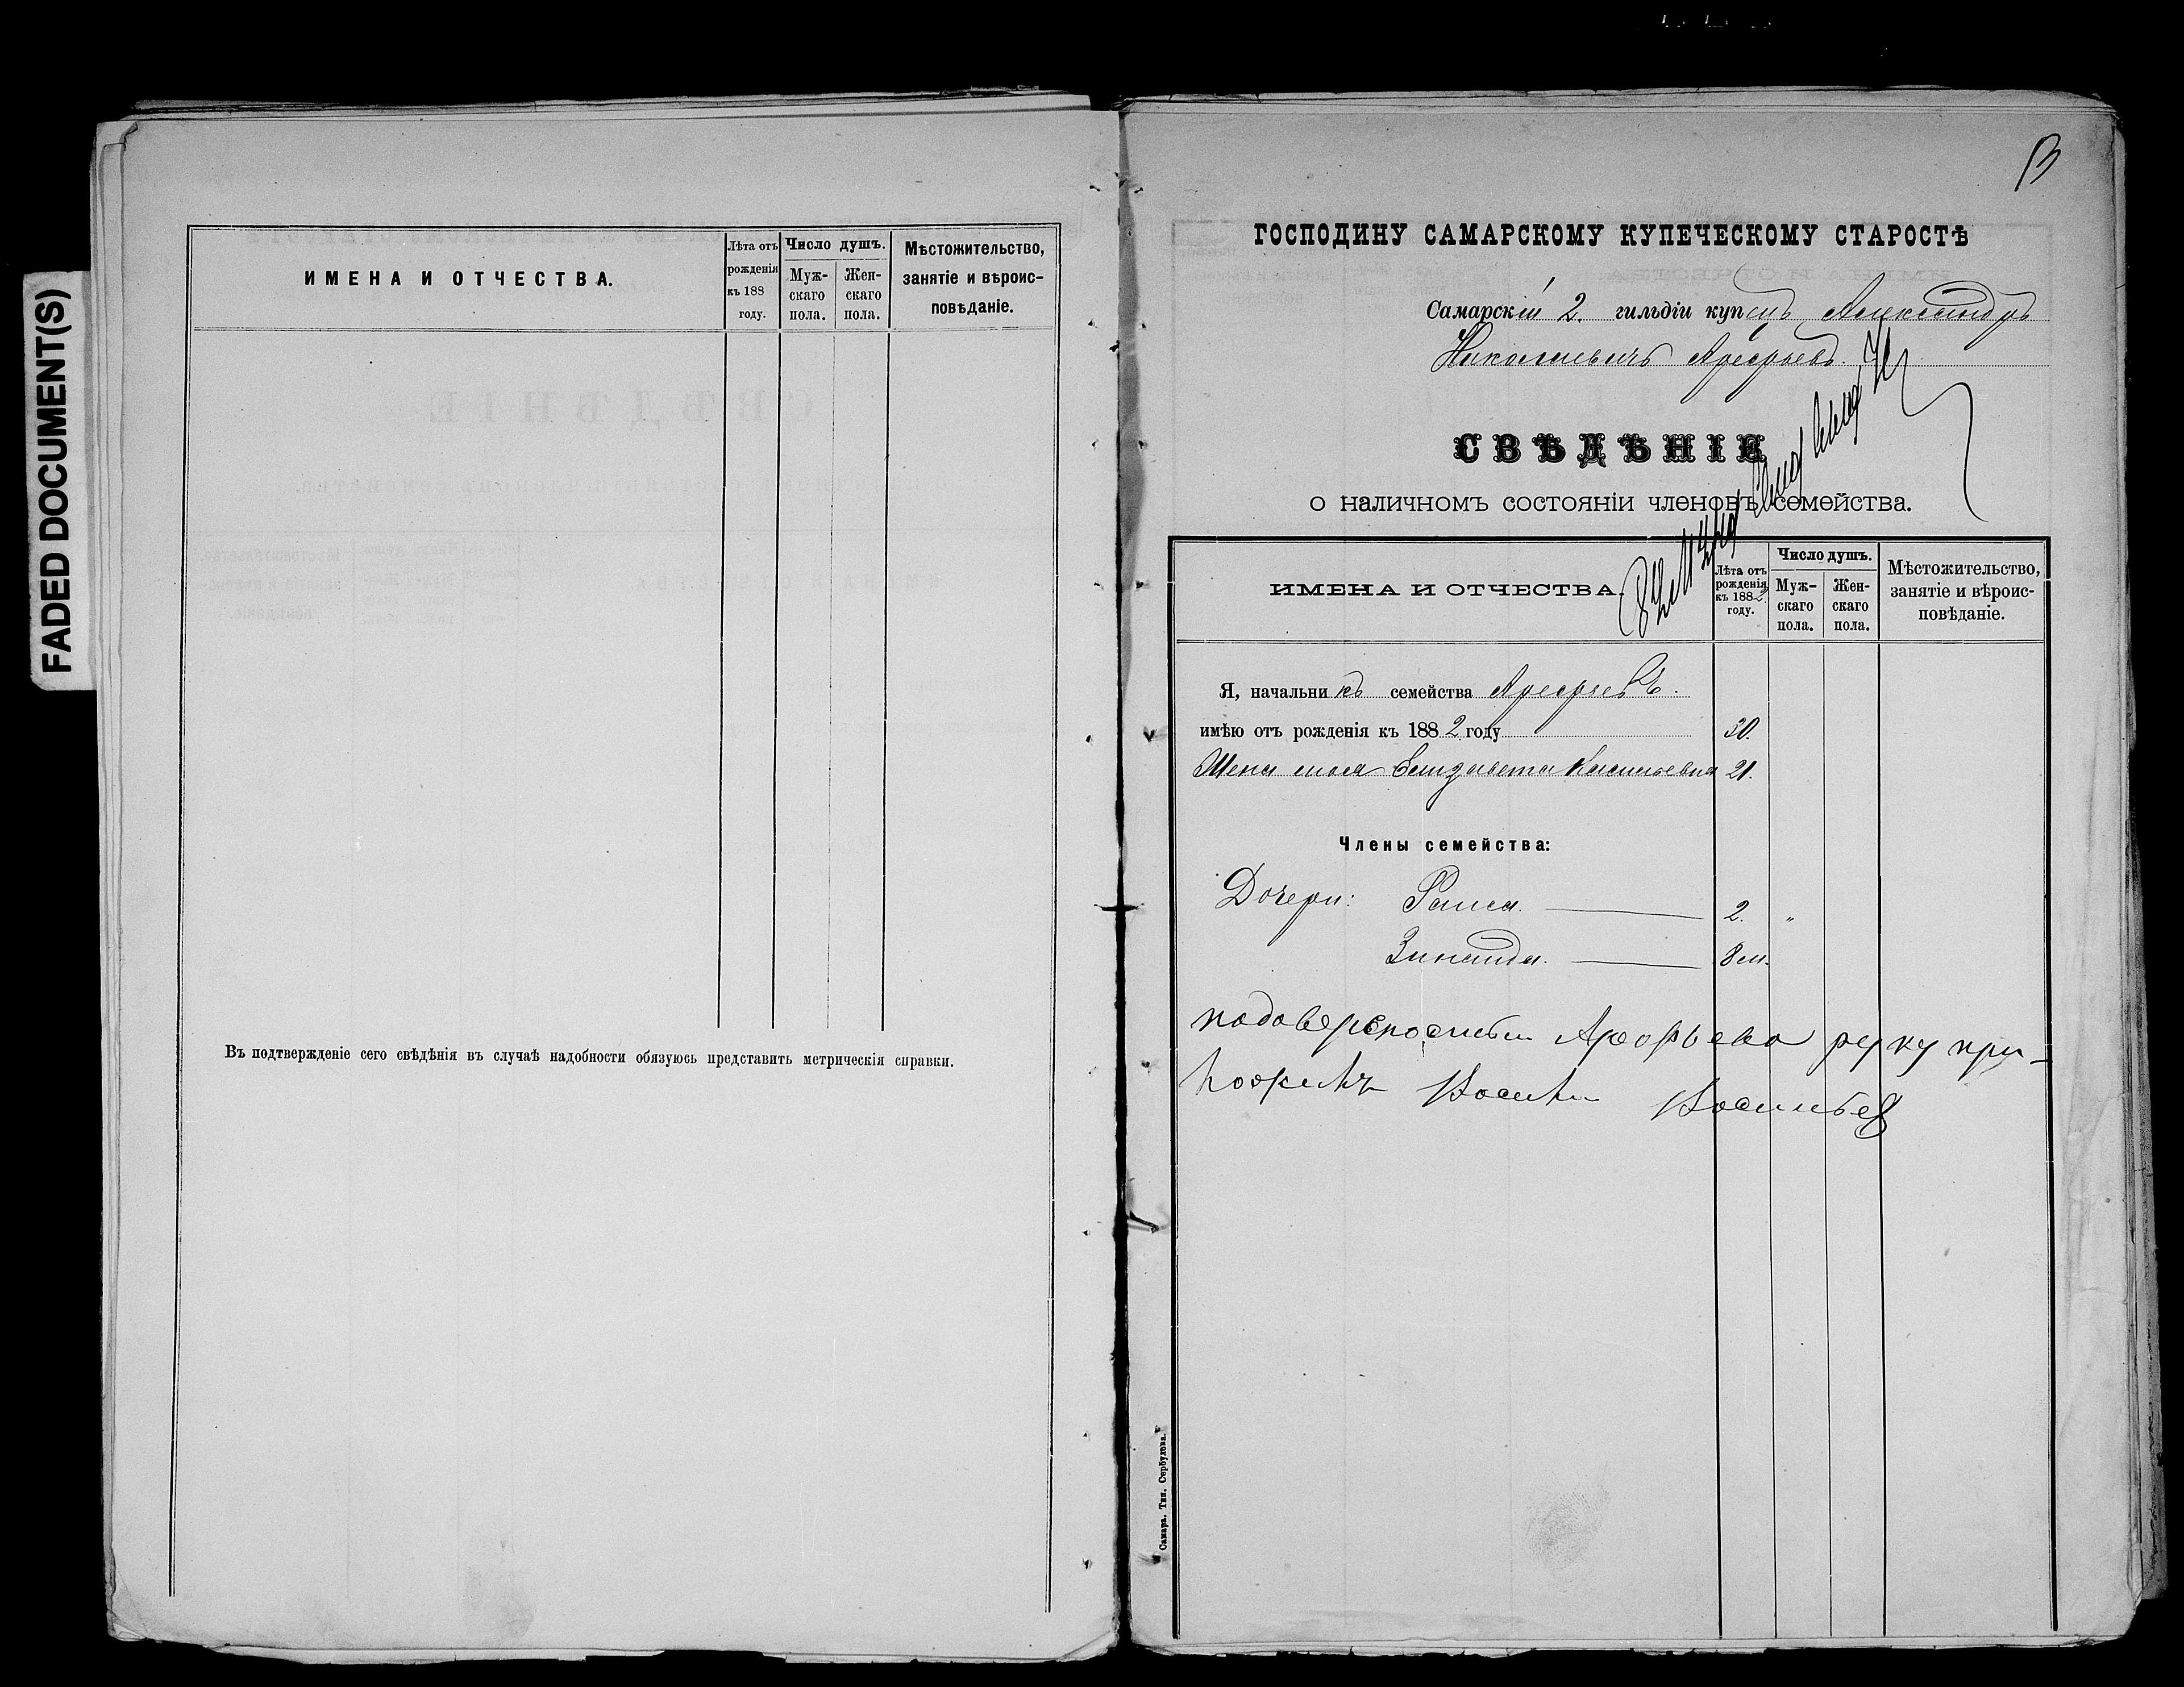 FADED DOCUMENT(S)
ИМЕНА И ОТЧЕСТВА.
Лѣта отъ рожденія къ 188 году.
Число душъ.
Муж-скаго пола.
Жен-скаго пола.
Мѣстожительство, занятіе и вѣроис-повѣданіе.
Въ подтвержденіе сего свѣдѣнія въ случаѣ надобности обязуюсь представить метрическія справки.
ГОСПОДИНУ САМАРСКОМУ КУПЕЧЕСКОМУ СТАРОСТѢ
Самарскій 2. гильдіи купецъ Александръ
Николаевичъ Арефьевъ.
СВѢДѢНІЕ
о наличномъ состояніи членовъ семейства.
ИМЕНА И ОТЧЕСТВА.
Лѣта отъ рожденія къ 1882 году.
Число душъ.
Муж-скаго пола.
Жен-скаго пола.
Мѣстожительство, занятіе и вѣроис-повѣданіе.
Я, начальникъ семейства Арефьевъ.
имѣю отъ рожденія къ 1882 году 30.
Жена моя Елизавета Васильевна 21.
Члены семейства:
Дочери: Раиса. 2. "
Зинаида. 8 м.
по доверености Арефьева руку при-
ложилъ Васили Васильев
Самара. Тип. Сербулова.